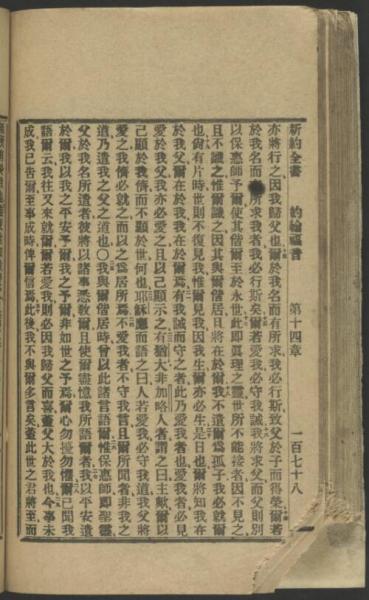 新約全書　約翰福音　第十四章　一百七十八
亦將行之因我歸父也爾於我名而有所求我必行斯致父於子而得榮爾若
於我名而所求我者我必行斯矣爾若愛我必守我誡我將求父而父則別
以保惠師予爾使其偕爾至於永世此即眞理之靈世所不能接者因不見之
且不識之惟爾識之因其與爾偕居且將在於爾我不遺爾爲孤子我必就爾
也尙有片時世則不復見我惟爾見我因我生爾亦必生是日也爾將知我在
於我父爾在於我我在於爾爲有我誡而守之者此乃愛我者也愛我者必見
愛於我父我亦必愛之且以己顯示之有猶大非加略人者謂之曰主歟爾以
己顯於我儕而不顯於世何也耶穌應而語之曰人若愛我必守我道我父將
愛之我儕必就之而以之爲居所焉不愛我者不守我言且爾所聞者非我之
道乃遣我之父之道也〇我與爾偕居時曾以此諸言語爾惟保惠師即聖靈
父於我名所遣者彼將以諸事悉敎爾且使爾盡憶我所語爾者我以平安遺
於爾我以我之平安予爾我之予爾非如世之予焉爾心勿擾勿懼爾已聞我
語爾云我往又來就爾爾若愛我則必因我歸父而喜蓋父大於我也今事未
成我已告爾至事成時俾爾信焉此後我不與爾多言矣蓋此世之君將至而